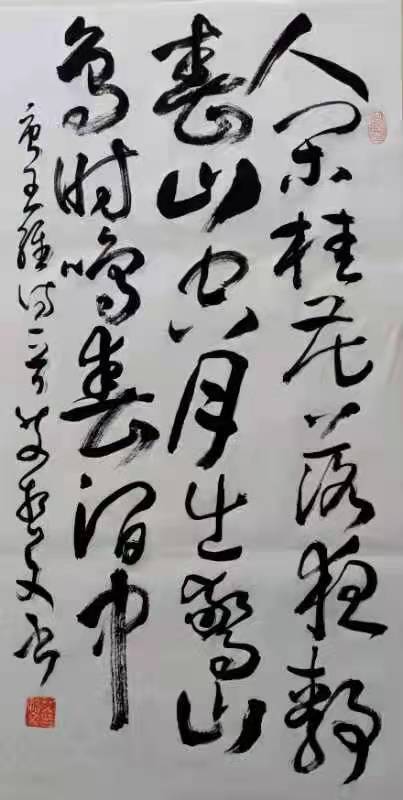 人闲桂花落夜静
春山空月出驚山
鸟时鸣春涧中
唐王维诗一首